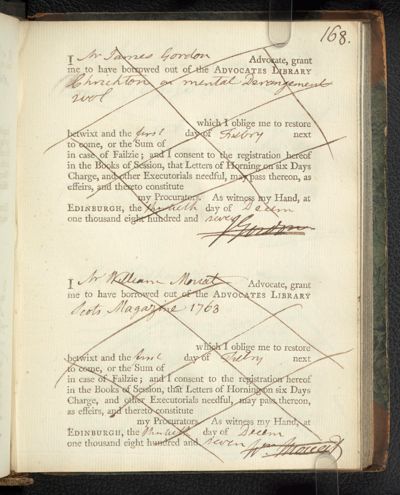 168.
I Mr James Gordon Advocate, grant
me to have borrowed out of the ADVOCATES LIBRARY
Chrichton on mental Derangement
which I oblige me to restore
betwixt and the first day of Febry next
to come, or the Sum of
in case of Failzie; and I consent to the registration hereof
in the Books of Session, that Letters of Horning on six Days
Charge, and other Executorials needful, may pass thereon, as
effeirs, and thereto constitute
my Procurators. As witness my Hand, at
EDINBURGH, the thirtieth day of Decem
one thousand eight hundred and seven
J Gordon
I Mr William Advocate, grant
me to have borrowed out of the ADVOCATES LIBRARY
Scots Magazine 1763
which I oblige me to restore
betwixt and the first day of Febry next
to come, or the Sum of
in case of Failzie; and I consent to the registration hereof
in the Books of Session, that Letters of Horning on six Days
Charge, and other Executorials needful, may pass thereon,
as effeirs, and thereto constitute
my Procurators. As witness my Hand, at
EDINBURGH, the thirtieth day of Decem
one thousand eight hundred and seven